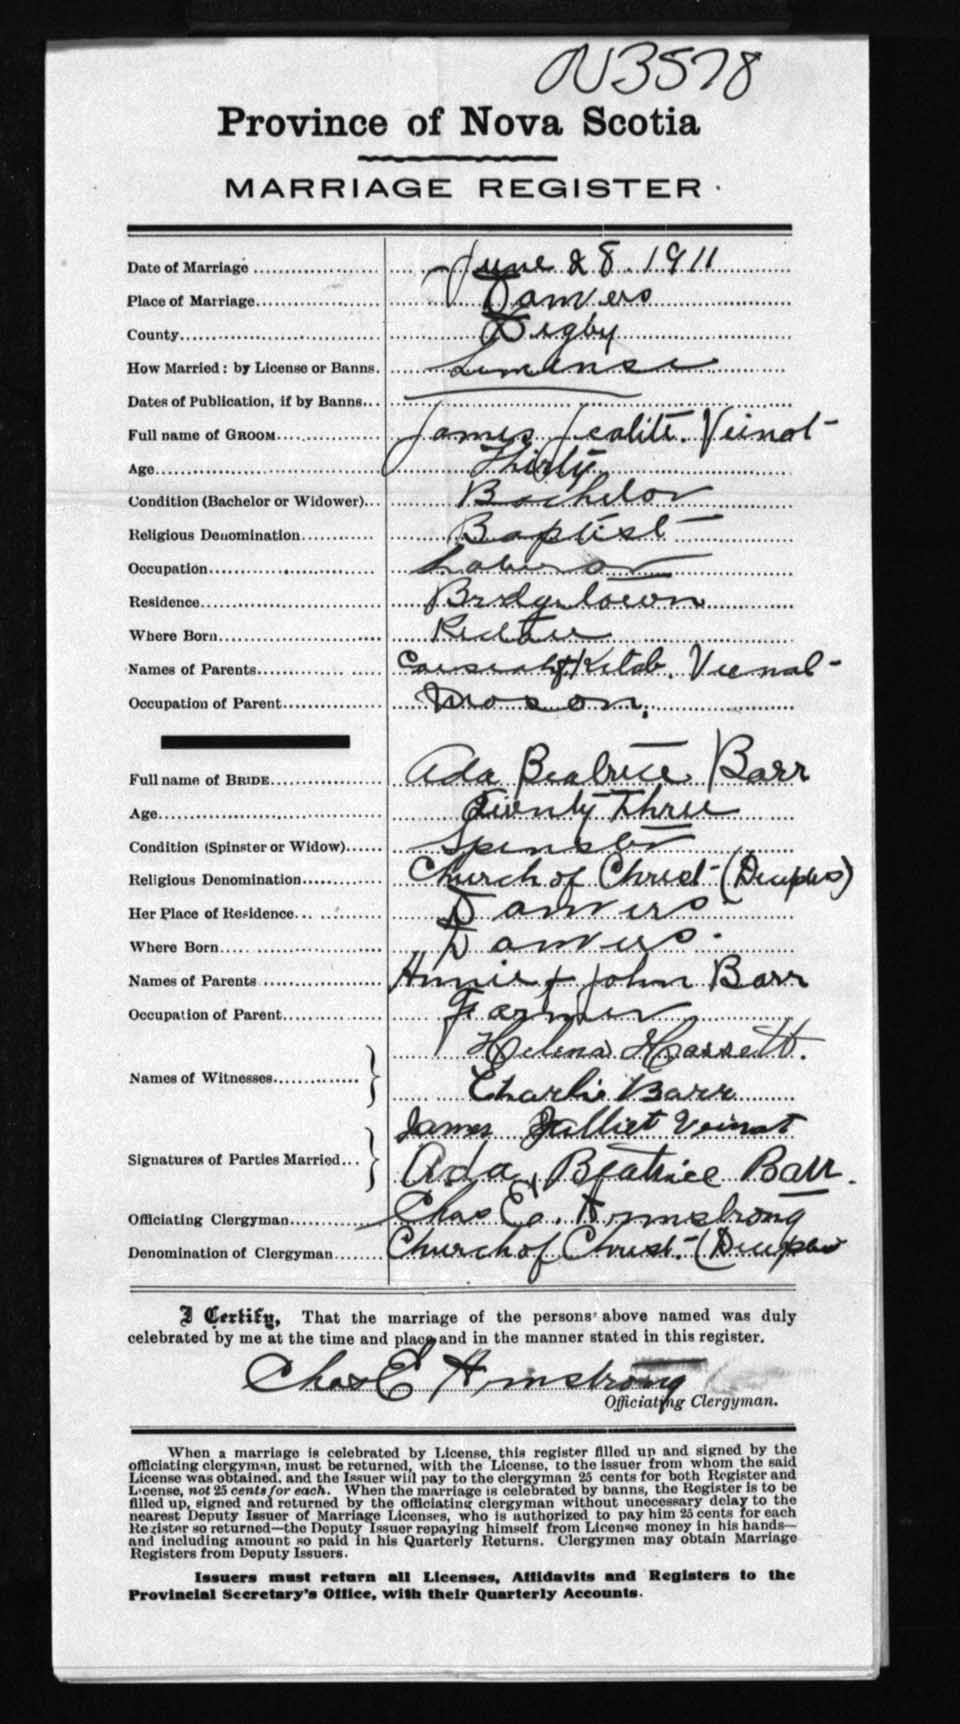 N3578
Province of Nova Scotia
MARRIAGE REGISTER
Date of Marriage June 28. 1911
Place of Marriage Danvers
County Digby
How Married: by License or Banns. Lisense
Dates of Publication, if by Banns
Full name of GROOM James Veinot
Age Thirty
Condition (Bachelor or Widower) Bachelor
Religious Denomination Baptist
Occupation Laberor
Residence Bridgetown
Where Born
Names of Parents Veinot
Occupation of Parent Mason.
Full name of BRIDE Ada Beatrice Barr
Age Twenty Three
Condition (Spinster or Widow) Spinster
Religious Denomination Church of Christ (Diciples)
Her Place of Residence Danvers
Where Born Danvers.
Names of Parents Annie + John Barr
Occupation of Parent Farmer
Helena Hassett.
Names of Witnesses
Charlie Barr
James Jalliet Veinot
Signatures of Parties Married
Ada Beatrice Barr.
Officiating Clergyman Chas E. Armstrong
Denomination of Clergyman Church of Christ. (Diciples
I Certify, That the marriage of the persons above named was duly
celebrated by me at the time and place and in the manner stated in this register.
Chas E Armstrong
Officiating Clergyman.
When a marriage is celebrated by License, this register filled up and signed by the
officiating clergyman, must be returned, with the License, to the issuer from whom the said
License was obtained, and the Issuer will pay to the clergyman 25 cents for both Register and
License, not 25 cents for each. When the marriage is celebrated by banns, the Register is to be
filled up, signed and returned by the officiating clergyman without unecessary delay to the
nearest Deputy Issuer of Marriage Licenses, who is authorized to pay him 25 cents for each
Register so returned—the Deputy Issuer repaying himself from License money in his hands—
and including amount so paid in his Quarterly Returns. Clergymen may obtain Marriage
Registers from Deputy Issuers.
Issuers must return all Licenses, Affidavits and Registers to the
Provincial Secretary's Office, with their Quarterly Accounts.